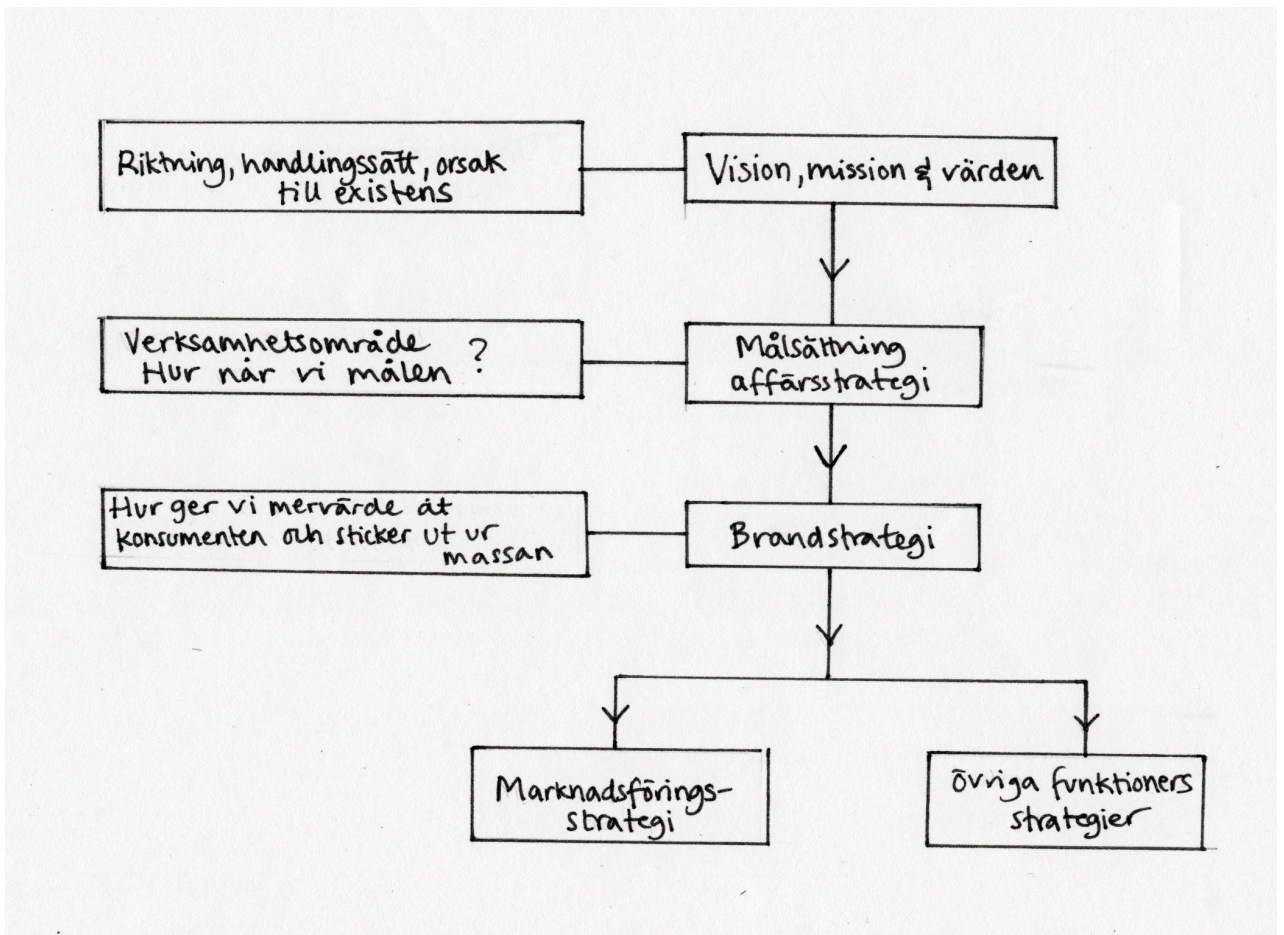 Riktning, handlingssätt, orsak
till existens
Vision, mission & värden
Verksamhetsområde
Hur når vi målen ?
Målsättning
affärsstrategi
Hur ger vi mervärde åt
konsumenten och sticker ut ur
massan
Brandstrategi
Marknadsförings-
strategi
övriga funktioners
strategier